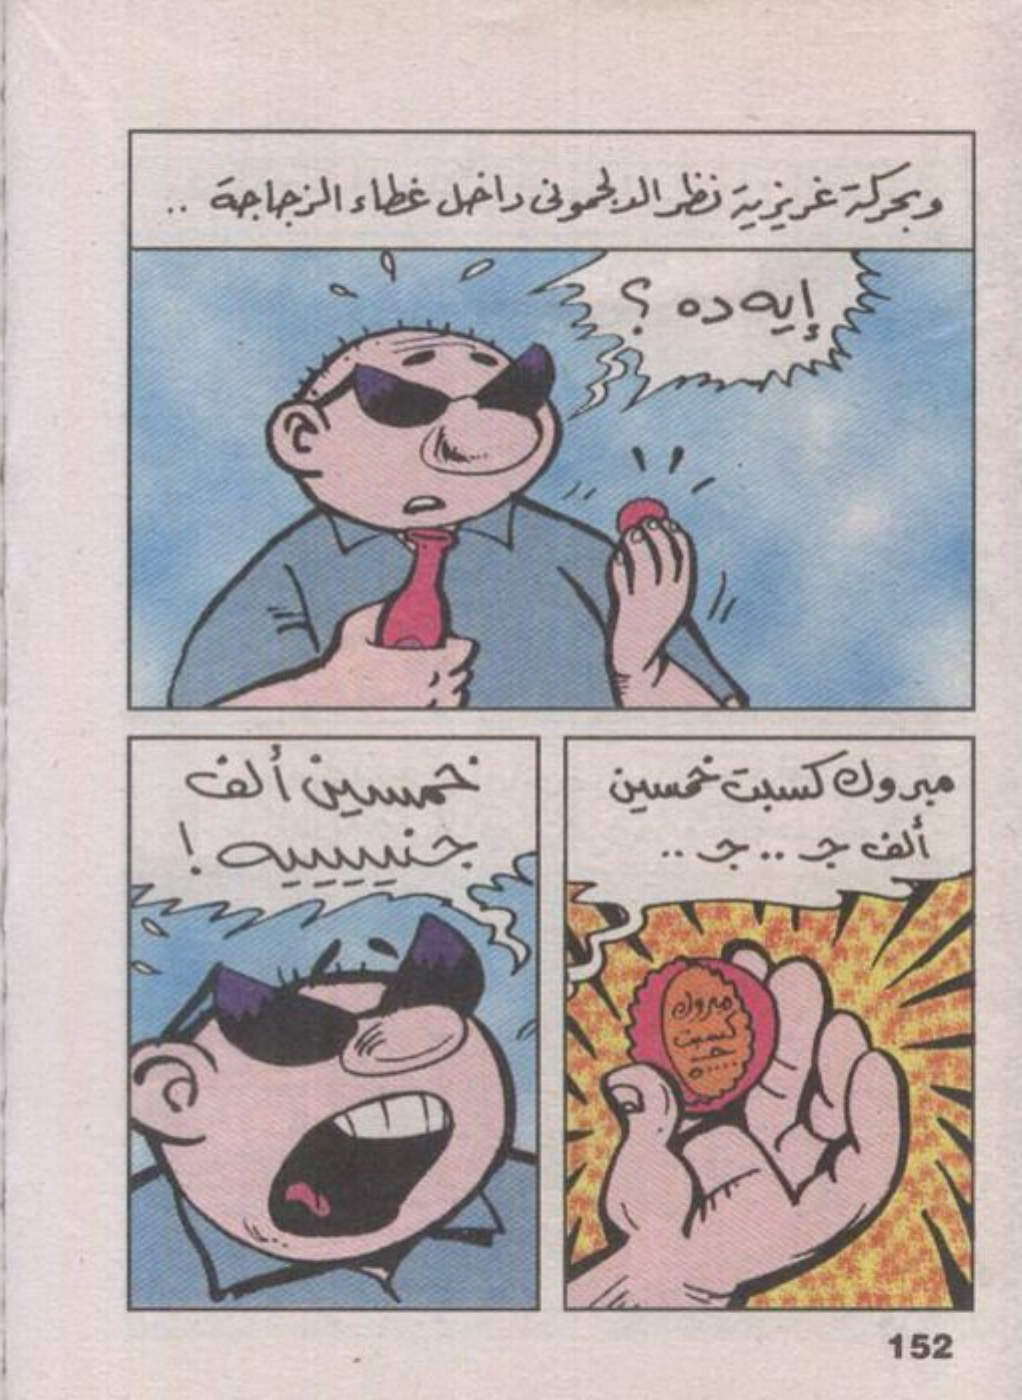 وبحركة غريزية نظر الدلجمونى داخل غطاء الزجاجة ..
إيه ده ؟
مبروك كسبت خمسين
ألف جـ .. جـ ..
مبروك
كسبت
جـ
٥٠٠٠٠
خمسين ألف
جنيييييه !
152